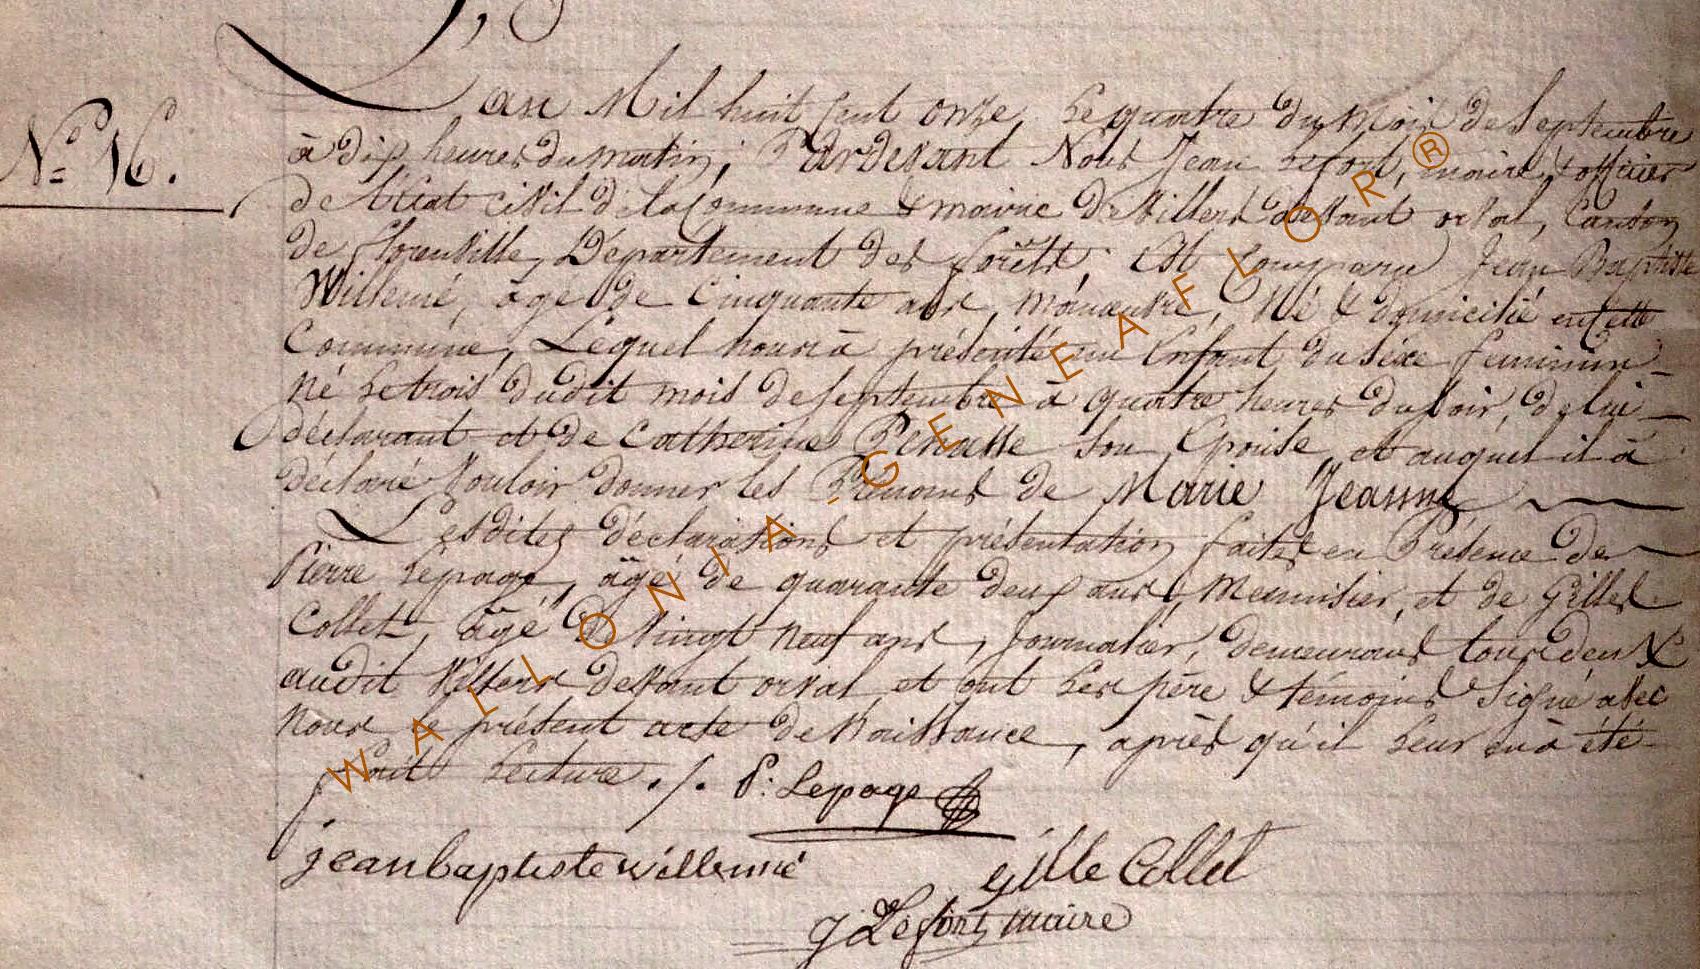 Nº 16.
L'an Mil huit Cent onze, Le quatre du Mois de Septembre
à dix heures du matin, Pardevant Nous Jean Lefort, maire & officier
de l'Etat civil de la Commune & mairie De Villers devant orval, Canton
de florenville, Département des forêts, Est Comparu Jean Baptiste
Willemé, âgé de Cinquante ans, manœuvre, Né & domicilié en cette
Commune, Lequel nous à présenté un Enfant du séxe feminin
né Le trois dudit mois de Septembre à quatre heures du soir, de lui
déclarant et de Catherine Son Epouse, et auquel il à
déclaré Vouloir donner les Prénoms de Marie Jeanne
Lesdites déclarations et présentation faites en Présence de
Pierre Lepage, âgé de quarante deux ans, Menuisier, et de Gilles
Collet, âgé de Vingt neuf ans, Journalier, demeurans tous deux
audit Villers devant orval, et ont Les père & témoins Signé avec
Nous le présent acte de Naissance, après qu'il Leur en à été
fait Lecture ./. P: Lepage
jean baptiste willemé
gille Collet
g Lefort maire
WALLONIA-GENEAFLOR®